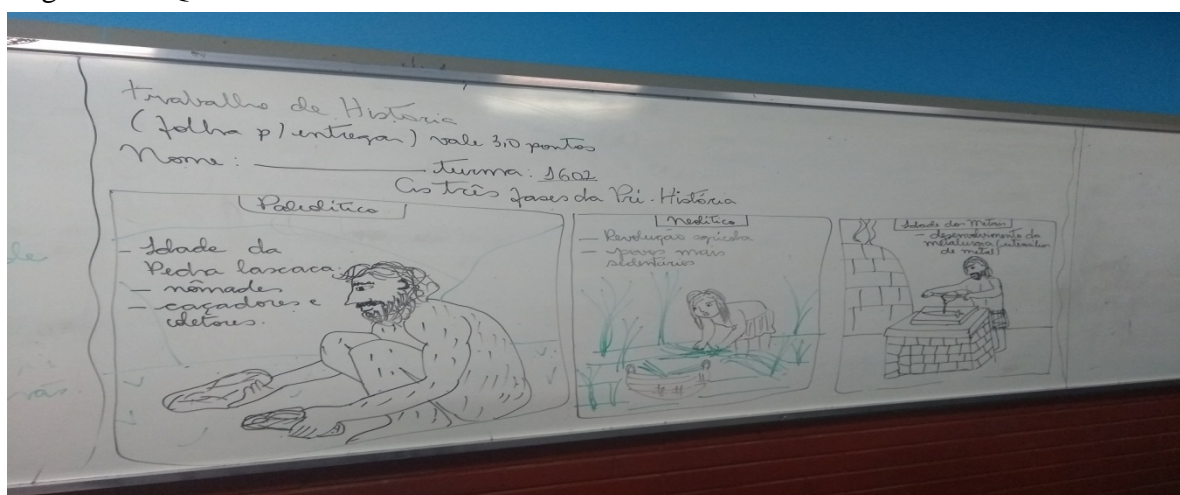 Trabalho de História
(folha p/ entregar) vale 3,0 pontos
Nome: __________ turma: 1602
As três fases da Pré-História
Paleolítico
- Idade da
Pedra lascada;
- nômades
- caçadores e
coletores.
Neolítico
- Revolução agrícola
- povos mais
sedentários
Idade dos Metais
- desenvolvimento da
metalurgia (utensílios
de metal)